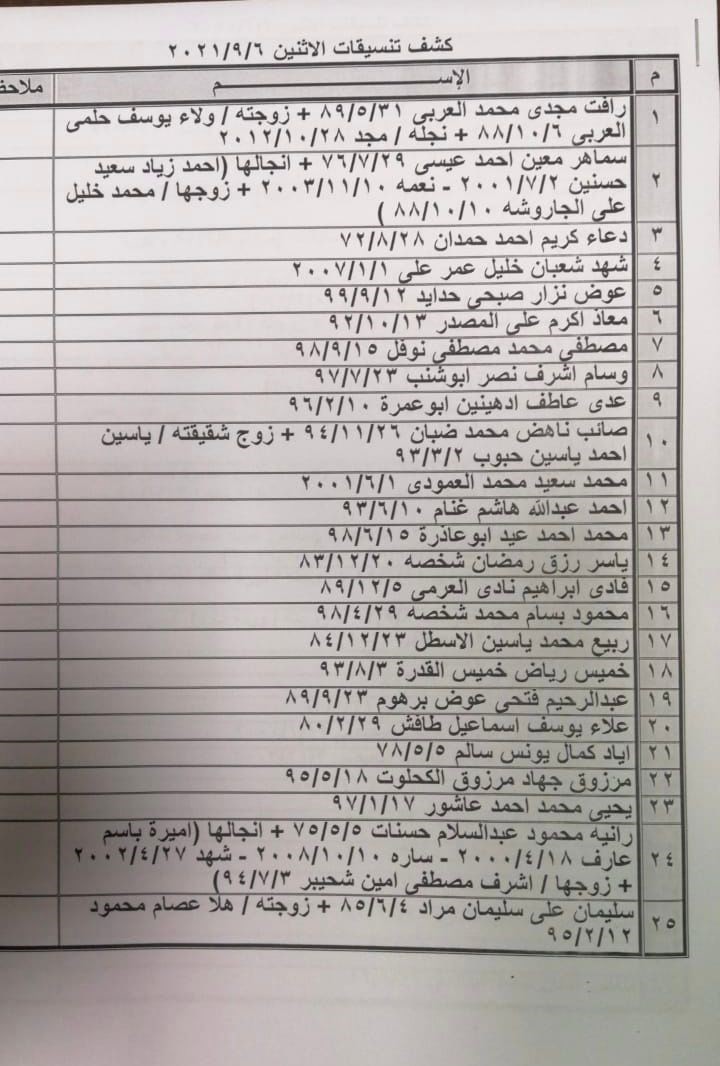 كشف تنسيقات الاثنين ٢٠٢١/٩/٦
م الإســـــــــــــــم
١ رافت مجدى محمد العربى ٨٩/٥/٣١ + زوجته / ولاء يوسف حلمى
العربى ٨٨/١٠/٦ + نجله / مجد ٢٠١٢/١٠/٢٨
سماهر معين احمد عيسى ٧٦/٧/٢٩ + انجالها (احمد زياد سعيد
٢ حسنين ٢٠٠١/٧/٢ - نعمه ٢٠٠٣/١١/١٠ + زوجها / محمد خليل
على الجاروشه ٨٨/١٠/١٠ )
٣ دعاء كريم احمد حمدان ٧٢/٨/٢٨
٤ شهد شعبان خليل عمر على ٢٠٠٧/١/١
٥ عوض نزار صبحى حدايد ٩٩/٩/١٢
٦ معاذ اكرم على المصدر ٩٢/١٠/١٣
٧ مصطفى محمد مصطفى نوفل ٩٨/٩/١٥
٨ وسام اشرف نصر ابوشنب ٩٧/٧/٢٣
٩ عدى عاطف ادهينين ابوعمرة ٩٦/٢/١٠
١٠ صائب ناهض محمد ضبان ٩٤/١١/٢٦ + زوج شقيقته / ياسين
احمد ياسين حبوب ٩٣/٣/٢
١١ محمد سعيد محمد العمودى ٢٠٠١/٦/١
١٢ احمد عبدالله هاشم غنام ٩٣/٦/١٠
١٣ محمد احمد عيد ابوعاذرة ٩٨/٦/١٥
١٤ ياسر رزق رمضان شخصه ٨٣/١٢/٢٠
١٥ فادى ابراهيم نادى العرمى ٨٩/١٢/٥
١٦ محمود بسام محمد شخصه ٩٨/٤/٢٩
١٧ ربيع محمد ياسين الاسطل ٨٤/١٢/٢٣
١٨ خميس رياض خميس القدرة ٩٣/٨/٣
١٩ عبدالرحيم فتحى عوض برهوم ٨٩/٩/٢٣
٢٠ علاء يوسف اسماعيل طافش ٨٠/٢/٢٩
٢١ اياد كمال يونس سالم ٧٨/٥/٥
٢٢ مرزوق جهاد مرزوق الكحلوت ٩٥/٥/١٨
٢٣ يحيى محمد احمد عاشور ٩٧/١/١٧
رانيه محمود عبدالسلام حسنات ٧٥/٥/٥ + انجالها (اميرة باسم
٢٤ عارف ٢٠٠٠/٤/١٨ - ساره ٢٠٠٨/١٠/١٠ - شهد ٢٠٠٢/٤/٢٧
+ زوجها / اشرف مصطفى امين شحيبر ٩٤/٧/٣)
٢٥ سليمان على سليمان مراد ٨٥/٦/٤ + زوجته / هلا عصام محمود
٩٥/٢/١٢